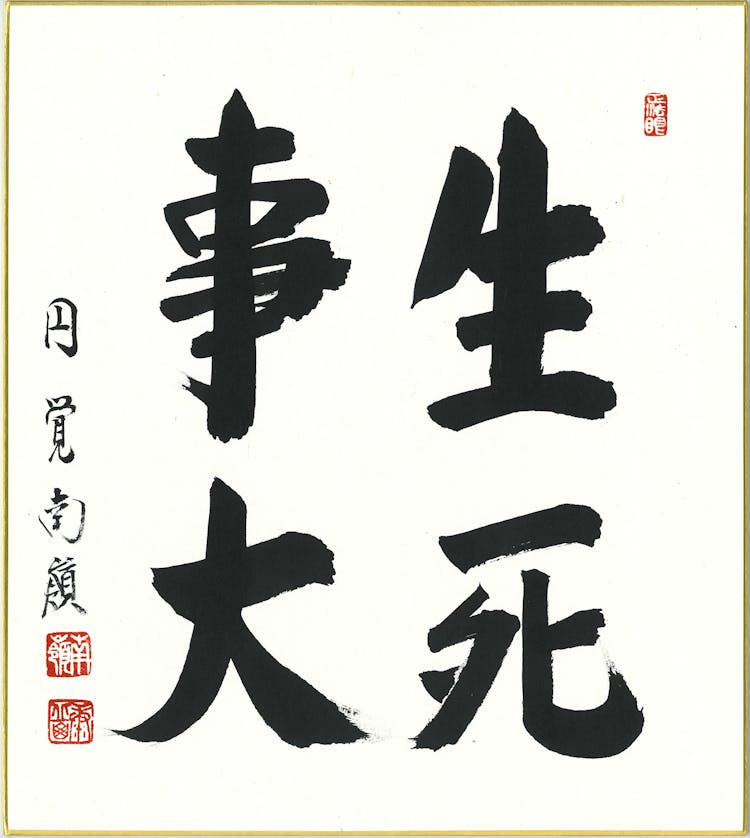 生死
事大
円覚南嶺